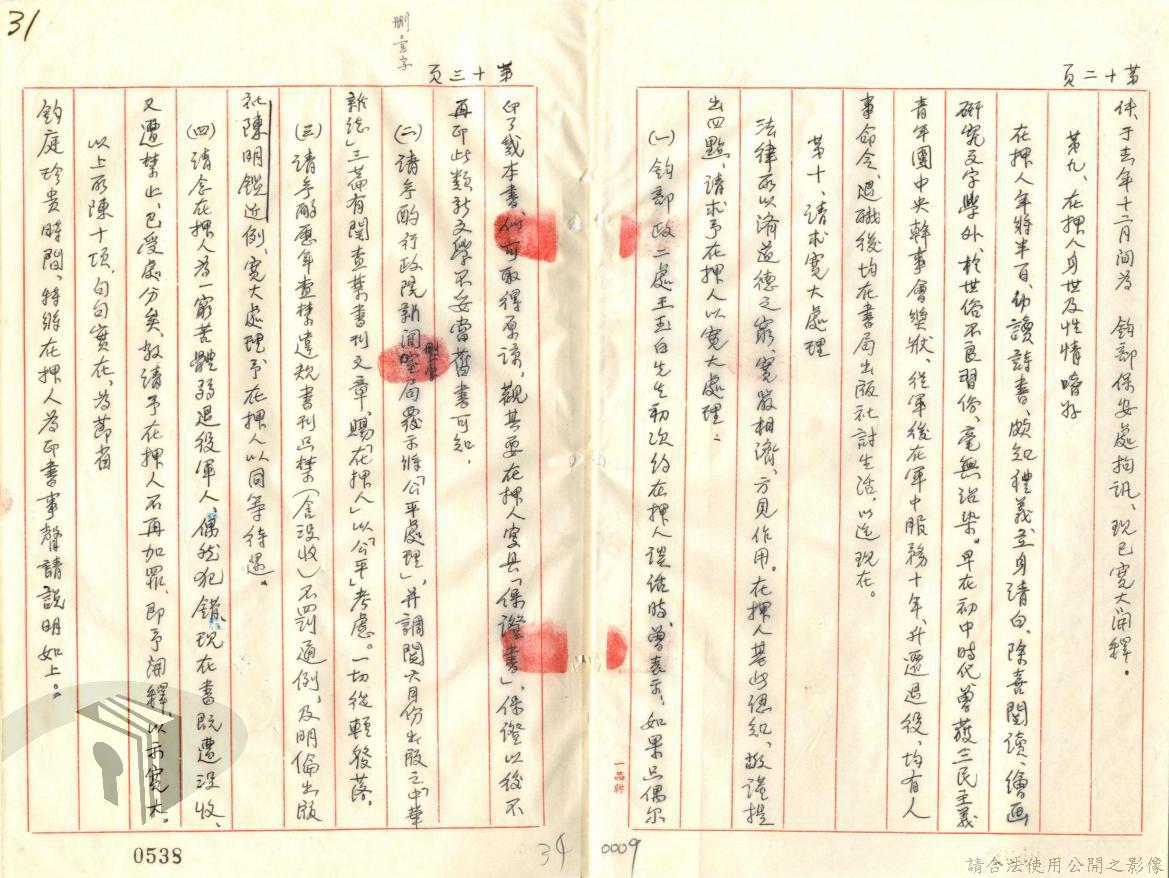 第十二頁
伕于去年十二月間為 鈞部保安處拘訊、現已寬大開釋。
第九、在押人身世及性情嗜好
在押人年將半百、幼讀詩書、頗知禮義、立身清白、除喜閱讀、繪画
研究文字學外、於世俗不良習俗、毫無沾染。早在初中時代曾獲三民主義
青年團中央幹事會獎狀、從軍後在軍中服務十年、升遷退役、均有人
事命令、退職後均在書局出版社討生活、以迄現在。
第十、請求寬大處理
法律所以濟道德之窮、寬嚴相濟、方見作用。在押人基此認知、敬謹提
出四點、請求予在押人以寬大處理：
(一)鈞部政二處王玉白先生初次約在押人談話時、曾表示，如果只偶尔
一品牌
0009
第十三頁
刪壹字
印了幾本書、似可取得原諒，觀其要在押人寫具「保證書」、保證以後不
再印此類新文學不妥當舊書可知，
(二)請參酌行政院新聞局覆示將「公平處理」，并調閱六月份出版之「中華
雜誌」三篇有関查禁書刊文章、賜「在押人」以「公平」考慮。一切從輕發落。
(三)請參酌歷年查禁違規書刊只禁(含沒收)不罰通例、及明倫出版
社陳明鑑近例、寬大處理予在押人以同等待遇。
(四)請念在押人為一窮苦體弱退役軍人、偶然犯錯、現在書既遭沒收、
又遭禁止、已受處分矣、敬請予在押人不再加罪、即予開釋、以示寬大。
以上所陳十項、句句實在、為節省
鈞庭珍貴時間、特將在押人為印書事聲請說明如上。
31
0538
34
請合法使用公開之影像